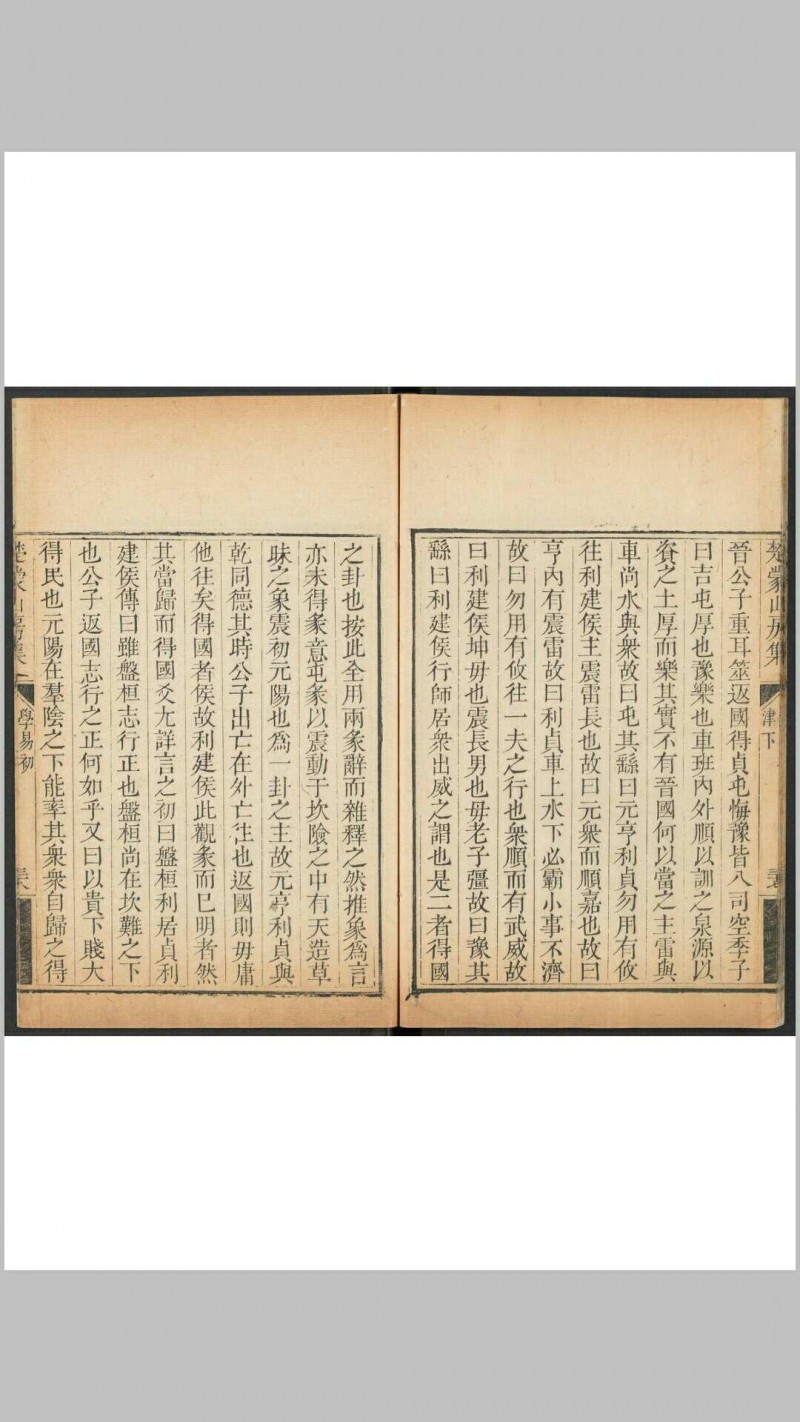 楚蒙山房集
津下
晉公子重耳筮返國得貞屯悔豫皆八司空季子
曰吉屯厚也豫樂也車班內外順以訓之泉源以
資之土厚而樂其實不有晉國何以當之主雷與
車尚水與衆故曰屯其繇曰元亨利貞勿用有攸
往利建侯主震雷長也故曰元衆而順嘉也故曰
亨內有震雷故曰利貞車上水下必霸小事不濟
故曰勿用有攸往一夫之行也衆順而有武威故
曰利建侯坤毋也震長男也毋老子彊故曰豫其
繇曰利建侯行師居衆出威之謂也是二者得國
之卦也按此全用兩彖辭而雜釋之然推象爲言
亦未得彖意屯彖以震動于坎險之中有天造草
昧之象震初元陽也爲一卦之主故元亨利貞與
乾同德其時公子出亡在外亡徃也返國則毋庸
他往矣得國者侯故利建侯此觀彖而巳明者然
其當歸而得國爻尢詳言之初曰盤桓利居貞利
建侯傳曰雖盤桓志行正也盤桓尚在坎難之下
也公子返國志行之正何如乎又曰以貴下賤大
得民也元陽在羣陰之下能率其衆衆自歸之得
楚蒙山房集
學易初